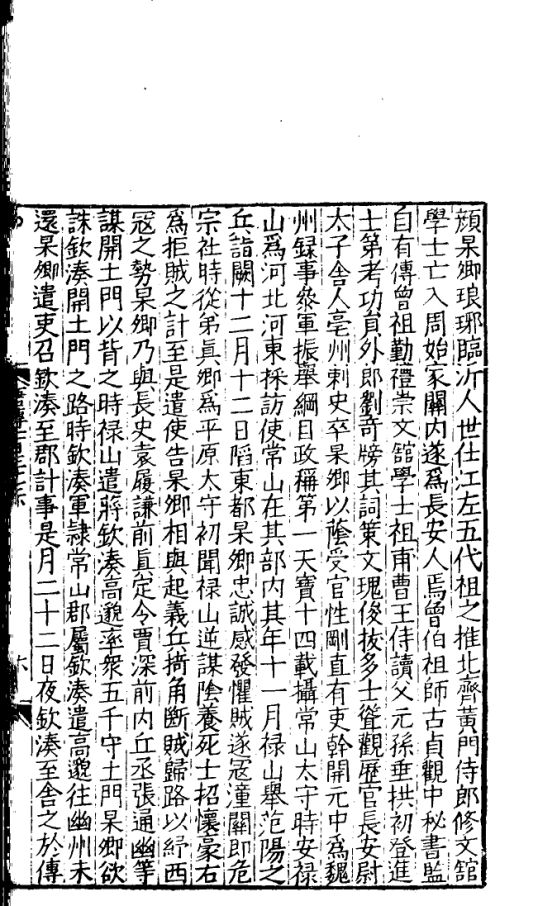 顔杲卿琅琊臨沂人世仕江左五代祖之推北齊黄門侍郎修文館
學士亡入周始家關内遂爲長安人焉曾伯祖師古貞觀中秘書監
自有傳曾祖勤禮崇文館學士祖甫曹王侍讀父元孫垂拱初登進
士第考功貟外郎劉竒牓其詞策文瑰俊拔多士聳觀歷官長安尉
太子舎人亳州剌史卒杲卿以䕃受官性剛直有吏幹開元中爲魏
州録事叅軍振舉綱目政稱第一天寶十四載攝常山太守時安禄
山爲河北河東採訪使常山在其部内其年十一月禄山舉范陽之
兵詣闕十二月十二日䧟東都杲卿忠誠感發懼賊遂冦潼關即危
宗社時從弟真卿爲平原太守初聞禄山逆謀隂養死士招懷豪右
爲拒賊之計至是遣使告杲卿相與起義兵掎角斷賊歸路以紓西
冦之勢杲卿乃與長史袁履謙前真定令賈深前内丘丞張通幽等
謀開土門以背之時禄山遣蔣欽湊高邈率衆五千守土門杲卿欲
誅欽湊開土門之路時欽湊軍隷常山郡屬欽湊遣高邈往幽州未
還杲卿遣吏召欽湊至郡計事是月二十二日夜欽湊至舎之於傳